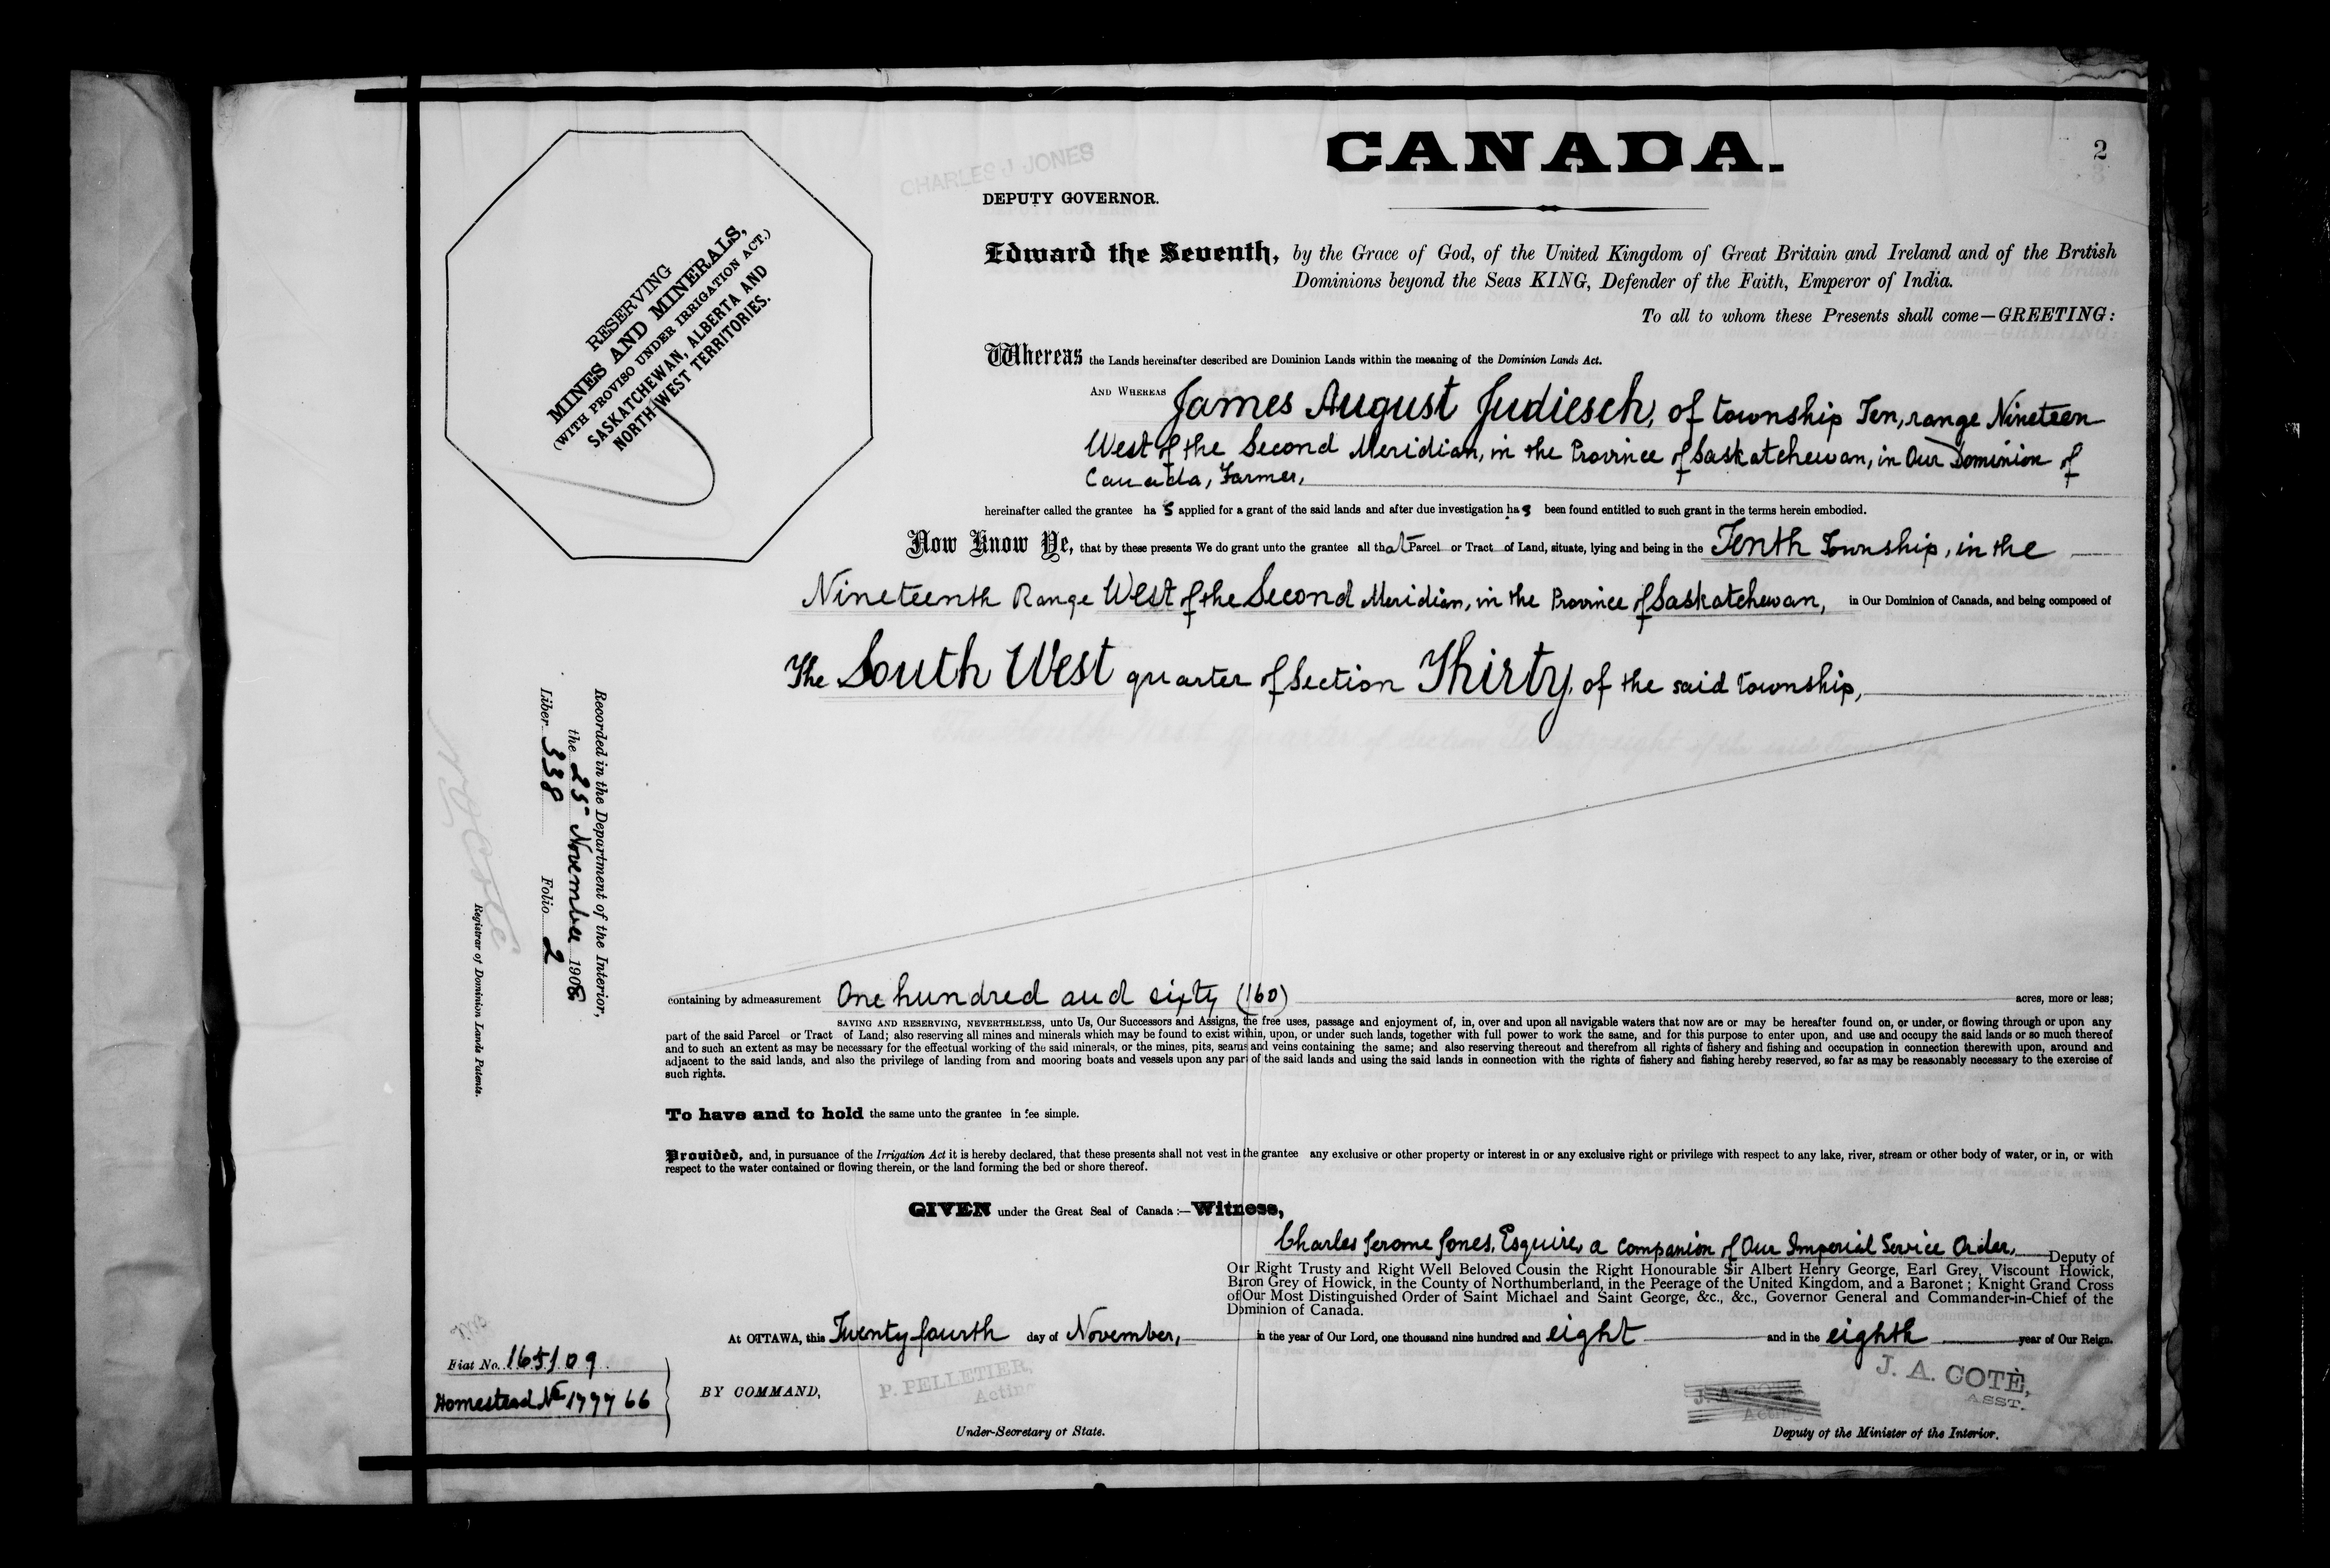 CANADA.
2
CHARLES J JONES
DEPUTY GOVERNOR.
RESERVING
MINES AND MINERALS,
(WITH PROVISO UNDER IRRIGATION ACT.)
SASKATCHEWAN, ALBERTA AND
NORTH-WEST TERRITORIES.
Edward the Seventh, by the Grace of God, of the United Kingdom of Great Britain and Ireland and of the British
Dominions beyond the Seas KING, Defender of the Faith, Emperor of India.
To all to whom these Presents shall come—GREETING:
Whereas the Lands hereinafter described are Dominion Lands within the meaning of the Dominion Lands Act.
AND WHEREAS James August Judiesch, of township Ten, range Nineteen
West of the Second Meridian, in the Province of Saskatchewan, in Our Dominion of
Canada, Farmer,
hereinafter called the grantee has applied for a grant of the said lands and after due investigation has been found entitled to such grant in the terms herein embodied.
Now Know Ye, that by these presents We do grant unto the grantee all that Parcel or Tract of Land, situate, lying and being in the Tenth Township, in the
Nineteenth Range West of the Second Meridian, in the Province of Saskatchewan, in Our Dominion of Canada, and being composed of
The South West quarter of Section Thirty, of the said township,
Recorded in the Department of the Interior,
the 25 November 1908
Liber 338 Folio 2
Registrar of Dominion Lands Patents.
containing by admeasurement One hundred and sixty (160) acres, more or less;
SAVING AND RESERVING, NEVERTHELESS, unto Us, Our Successors and Assigns, the free uses, passage and enjoyment of, in, over and upon all navigable waters that now are or may be hereafter found on, or under, or flowing through or upon any
part of the said Parcel or Tract of Land; also reserving all mines and minerals which may be found to exist within, upon, or under such lands, together with full power to work the same, and for this purpose to enter upon, and use and occupy the said lands or so much thereof
and to such an extent as may be necessary for the effectual working of the said minerals, or the mines, pits, seams and veins containing the same; and also reserving thereout and therefrom all rights of fishery and fishing and occupation in connection therewith upon, around and
adjacent to the said lands, and also the privilege of landing from and mooring boats and vessels upon any part of the said lands and using the said lands in connection with the rights of fishery and fishing hereby reserved, so far as may be reasonably necessary to the exercise of
such rights.
To have and to hold the same unto the grantee in fee simple.
Provided, and, in pursuance of the Irrigation Act it is hereby declared, that these presents shall not vest in the grantee any exclusive or other property or interest in or any exclusive right or privilege with respect to any lake, river, stream or other body of water, or in, or with
respect to the water contained or flowing therein, or the land forming the bed or shore thereof.
GIVEN under the Great Seal of Canada:—Witness,
Charles Jerome Jones, Esquire, a Companion of Our Imperial Service Order, Deputy of
Our Right Trusty and Right Well Beloved Cousin the Right Honourable Sir Albert Henry George, Earl Grey, Viscount Howick,
Baron Grey of Howick, in the County of Northumberland, in the Peerage of the United Kingdom, and a Baronet; Knight Grand Cross
of Our Most Distinguished Order of Saint Michael and Saint George, &c., &c., Governor General and Commander-in-Chief of the
Dominion of Canada.
At OTTAWA, this Twenty fourth day of November, in the year of Our Lord, one thousand nine hundred and eight and in the eighth year of Our Reign.
Fiat No. 165109
Homestead No 179966
BY COMMAND,
P. PELLETIER,
Acting
Under-Secretary of State.
J. A. COTÉ,
Acting
J. A. COTÉ,
ASST.
Deputy of the Minister of the Interior.